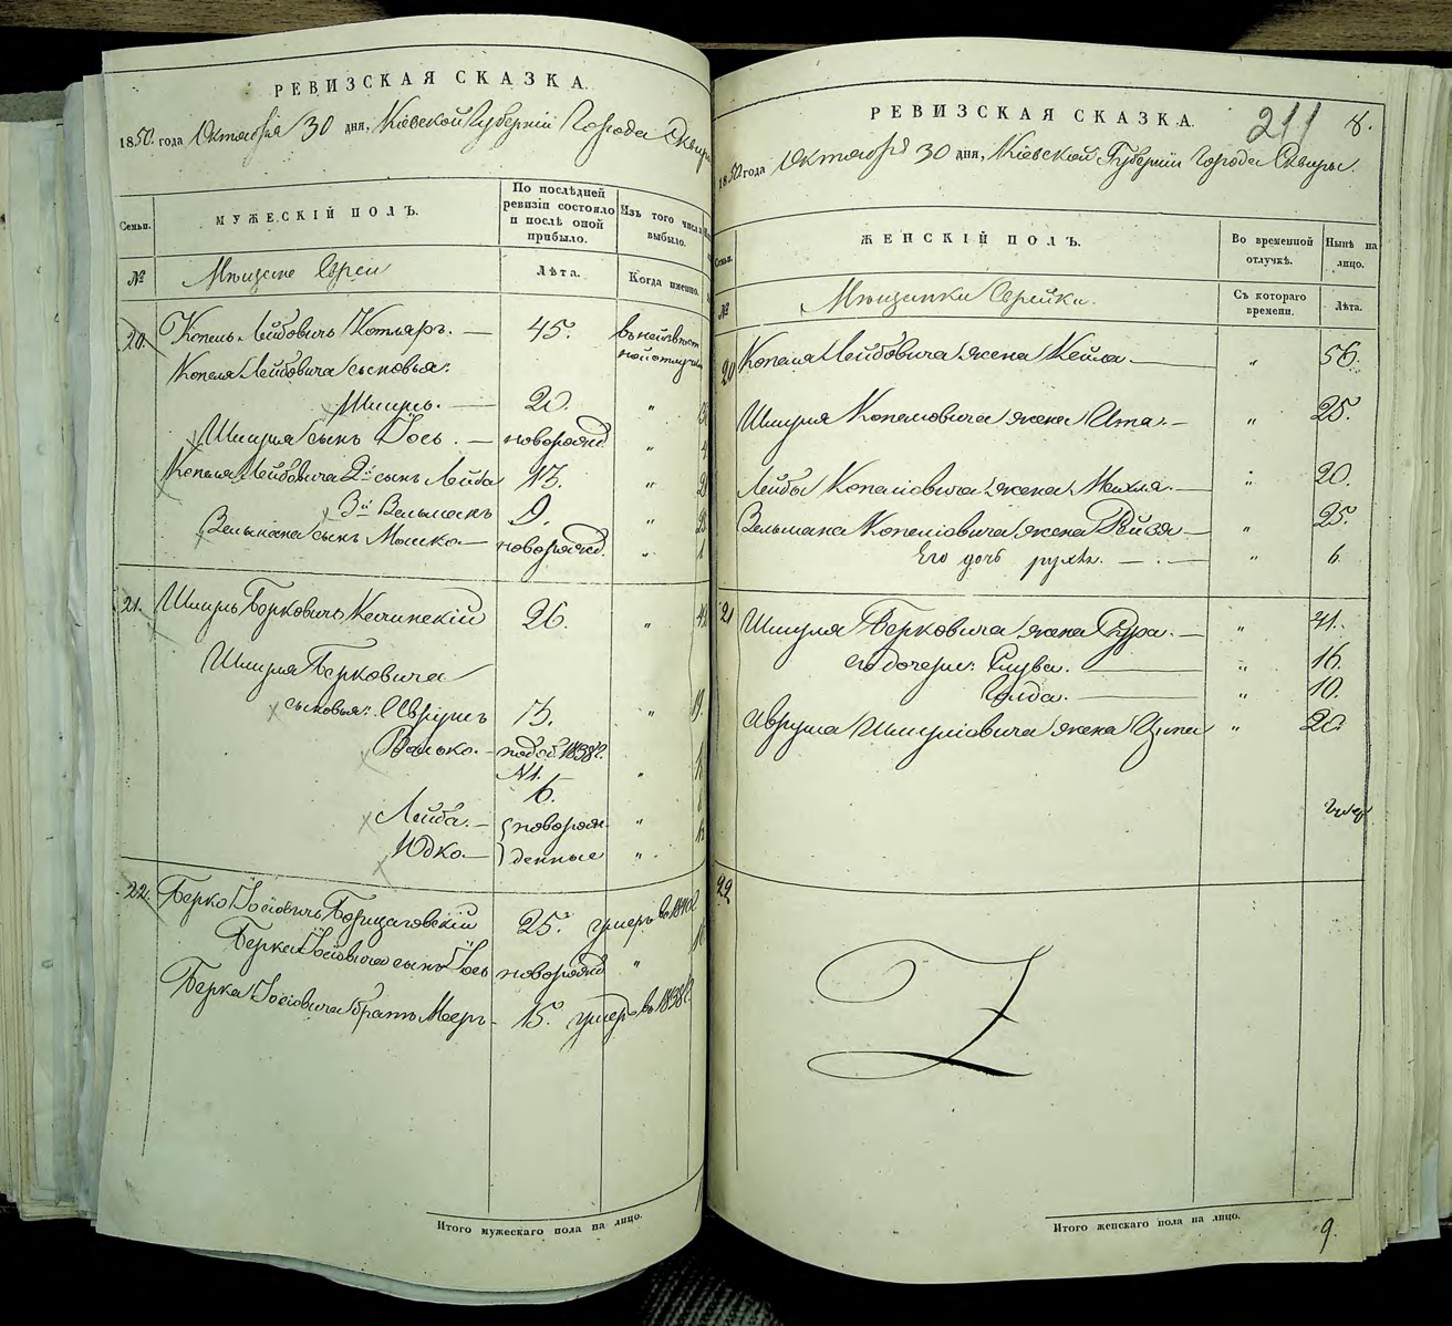 РЕВИЗСКАЯ СКАЗКА.
1850 года Октября 30 дня, Кіевской Губерніи Города Сквиры
Семьи.
МУЖЕСКІЙ ПОЛЪ.
По послѣдней ревизіи состояло и послѣ оной прибыло.
Изъ того числа выбыло.
№
Мещане Евреи
Лѣта.
Когда именно.
20. Копель Лейбовичъ Котляръ. — 45. въ неизвѣст
ной отлучк
Копеля Лейбовича сыновья:
Шмуль. — 20. "
Шмуля сынъ Іось. — новорожд. "
Копеля Лейбовича 2й сынъ Лейба 13. "
3й Вельманъ 9. "
Вельмана сынъ Мошко — новорожд. "
21. Шмуль Берковичъ 26. "
Шмуля Берковича
сыновья: Аврумъ 13. "
Волько. — 1838г.
№1.
6. "
Лейба. — новорож- "
Юдко. — денные "
22. Берко Іосіовичъ 25. умеръ въ
Берка Іосіовича сынъ Іось новорожд "
Берка Іосіовича братъ Мееръ - 15. умеръ въ 1838г.
Итого мужескаго пола на лицо.
РЕВИЗСКАЯ СКАЗКА.
211 8.
1850 года Октября 30 дня, Кіевской Губерніи Города Сквиры.
Семьи.
ЖЕНСКІЙ ПОЛЪ.
Во временной отлучкѣ.
Нынѣ на лицо.
№
Мещанки Еврейки.
Съ котораго времени.
Лѣта.
20 Копеля Лейбовича жена Кейла — " 56.
Шмуля Копелиовича жена Ита. — " 25.
Лейбы Копелиовича жена — " 20.
Вельмана Копелиовича жена Рейзя — " 25.
Его дочь рухля. — " 6
21 Шмуля Берковича жена Сура. — " 41.
его дочери: — " 16.
Голда. — " 10.
Аврума Шмулиовича жена Ципа " 20.
22
Z
Итого женскаго пола на лицо.
9.